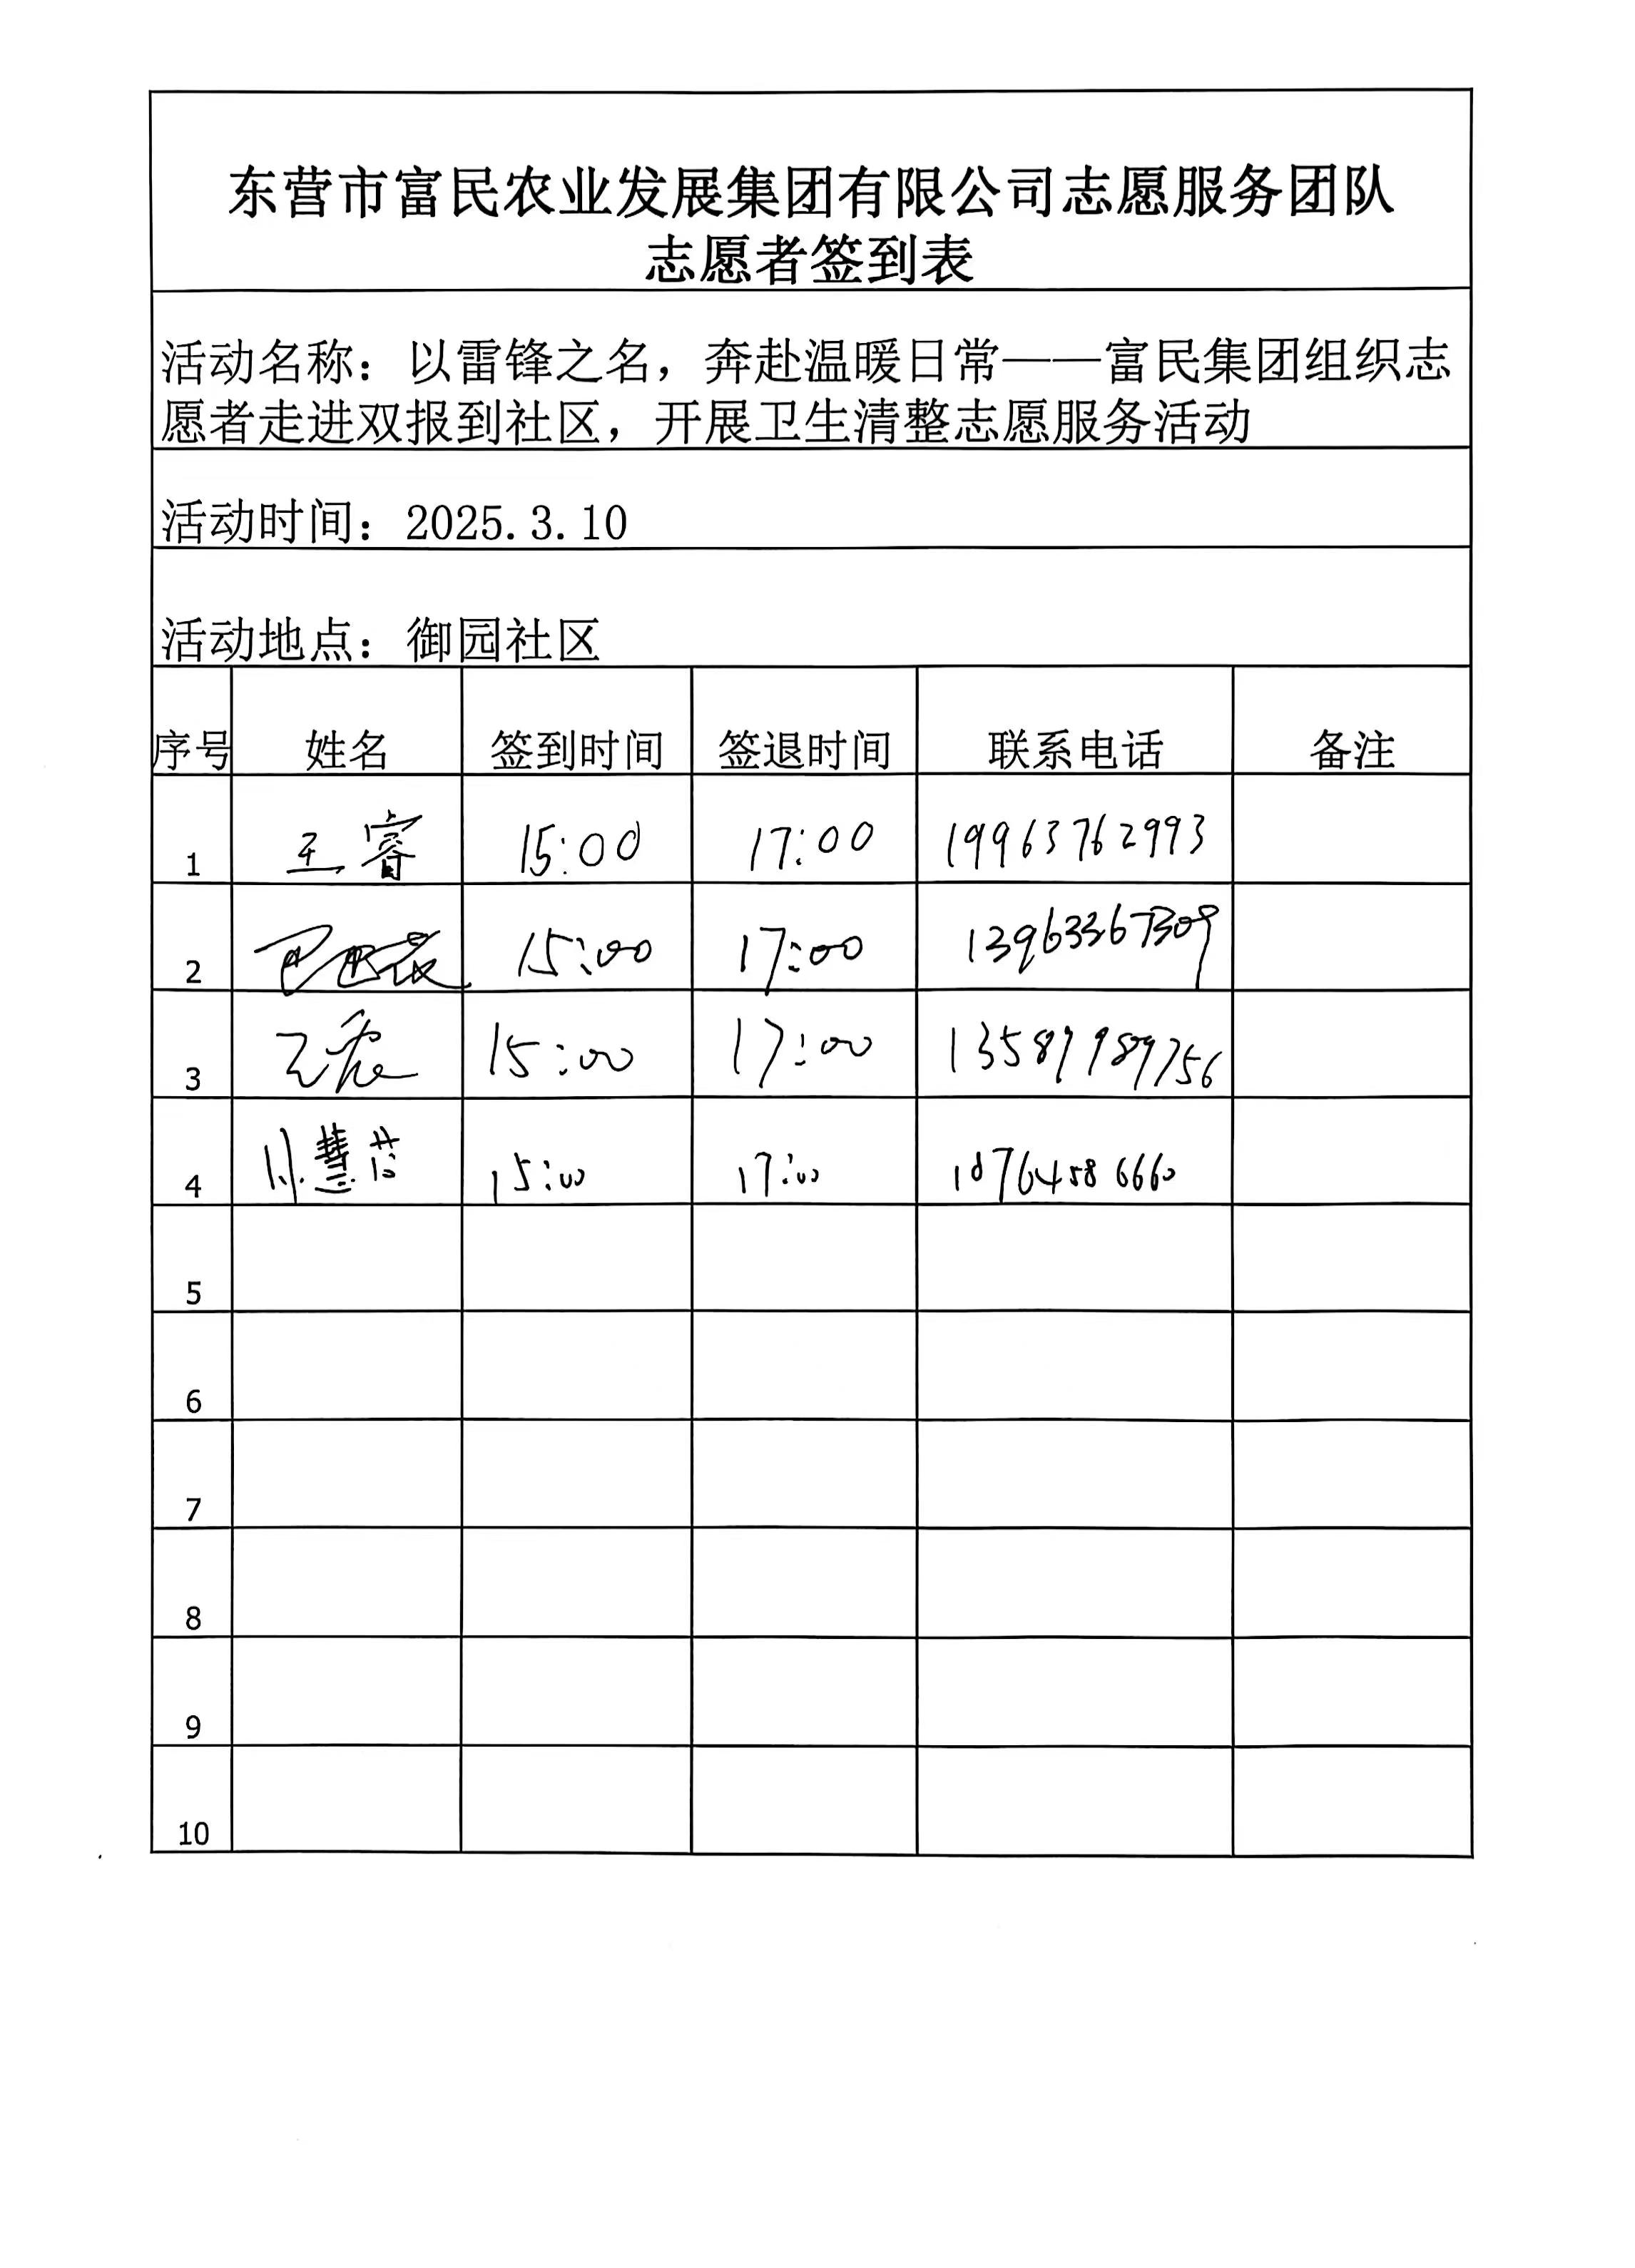 东营市富民农业发展集团有限公司志愿服务团队
志愿者签到表
活动名称：以雷锋之名，奔赴温暖日常——富民集团组织志
愿者走进双报到社区，开展卫生清整志愿服务活动
活动时间：2025.3.10
活动地点：御园社区
序号 姓名 签到时间 签退时间 联系电话 备注
1 王睿 15:00 17:00 19963762993
2 15:00 17:00 13963367309
3 15:00 17:00 13589989756
4 15:00 17:00
5
6
7
8
9
10